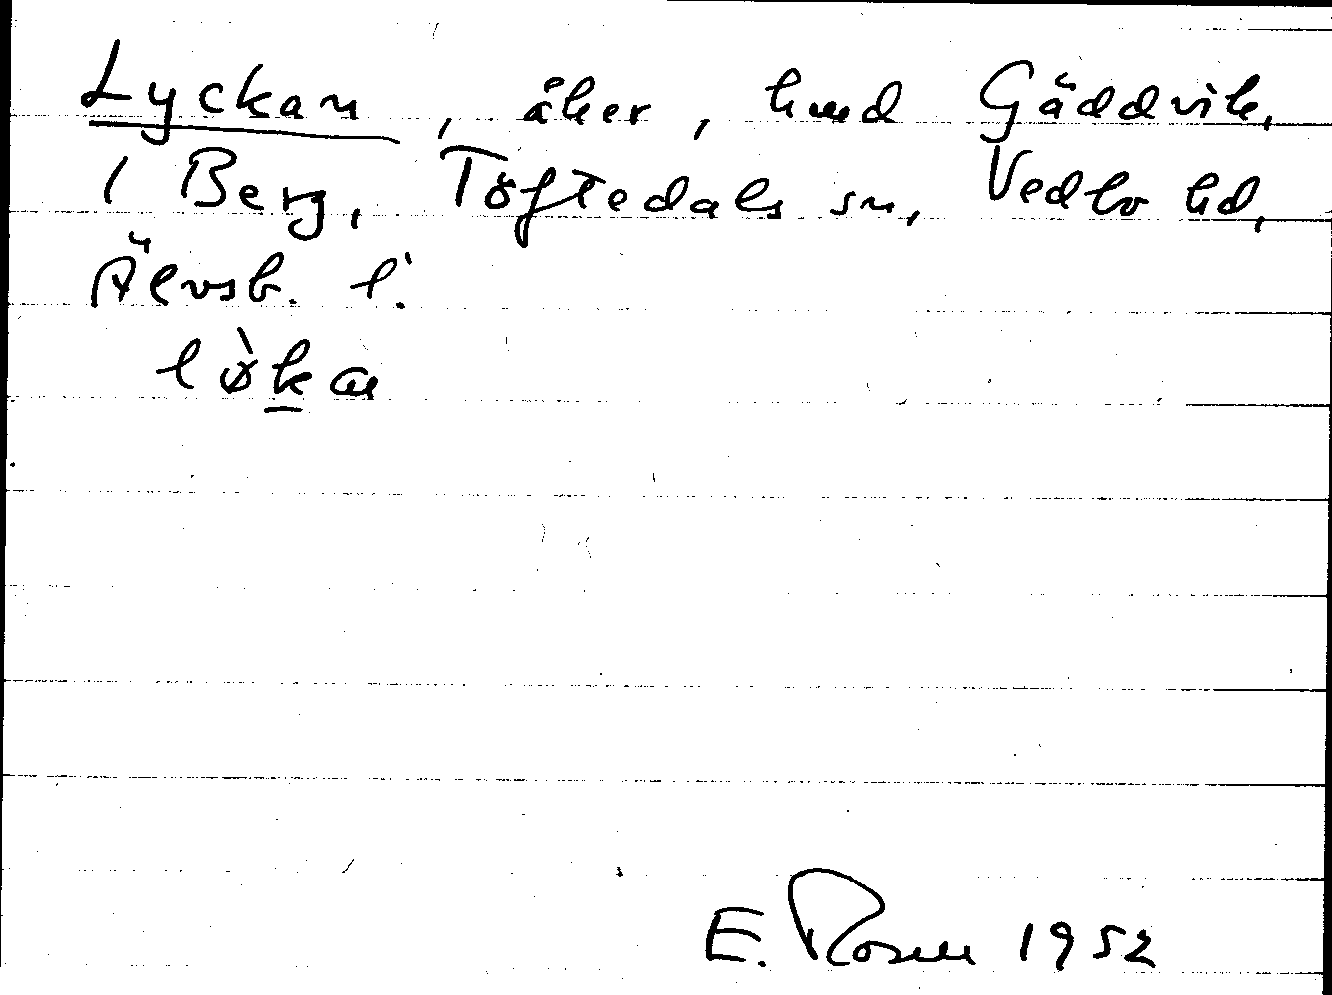 Lyckan, åker, hmd Gäddvik,
1 Berg, Töftedals sn, Vedbo hd,
Älvsb. l.
lø̀kan
E. Rosell 1952